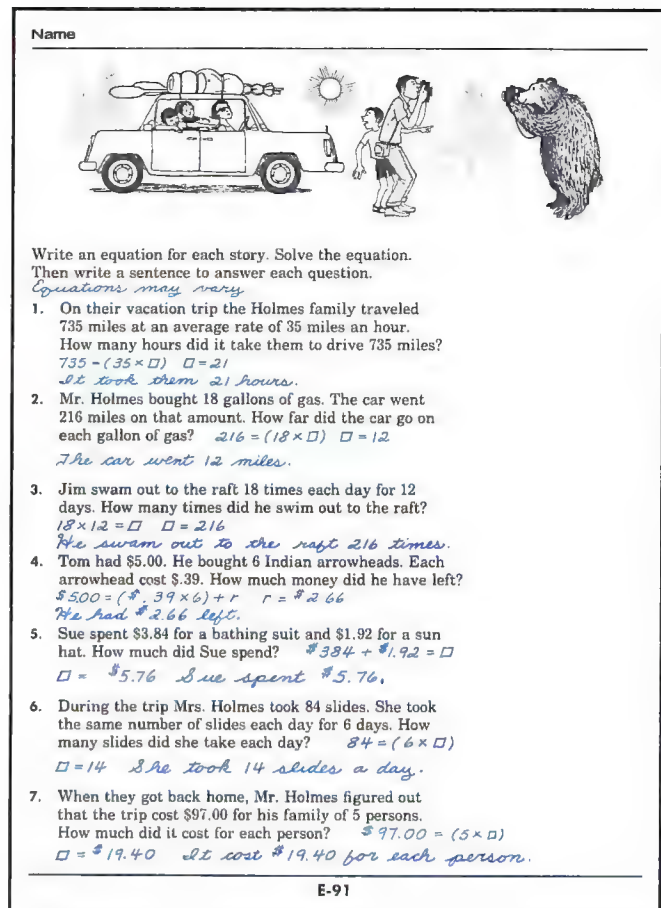 Name
Write an equation for each story. Solve the equation.
Then write a sentence to answer each question.
Equations may vary
1. On their vacation trip the Holmes family traveled
735 miles at an average rate of 35 miles an hour.
How many hours did it take them to drive 735 miles?
735 - (35 × □) □ = 21
It took them 21 hours.
2. Mr. Holmes bought 18 gallons of gas. The car went
216 miles on that amount. How far did the car go on
each gallon of gas? 216 = (18 × □) □ = 12
The car went 12 miles.
3. Jim swam out to the raft 18 times each day for 12
days. How many times did he swim out to the raft?
18 × 12 = □ □ = 216
He swam out to the raft 216 times.
4. Tom had $5.00. He bought 6 Indian arrowheads. Each
arrowhead cost $.39. How much money did he have left?
$5.00 = ($.39 × 6) + r r = $2.66
He had $2.66 left.
5. Sue spent $3.84 for a bathing suit and $1.92 for a sun
hat. How much did Sue spend? $384 + $1.92 = □
□ = $5.76 Sue spent $5.76.
6. During the trip Mrs. Holmes took 84 slides. She took
the same number of slides each day for 6 days. How
many slides did she take each day? 84 = (6 × □)
□ = 14 She took 14 slides a day.
7. When they got back home, Mr. Holmes figured out
that the trip cost $97.00 for his family of 5 persons.
How much did it cost for each person? $97.00 = (5 × □)
□ = $19.40 It cost $19.40 for each person.
E-91